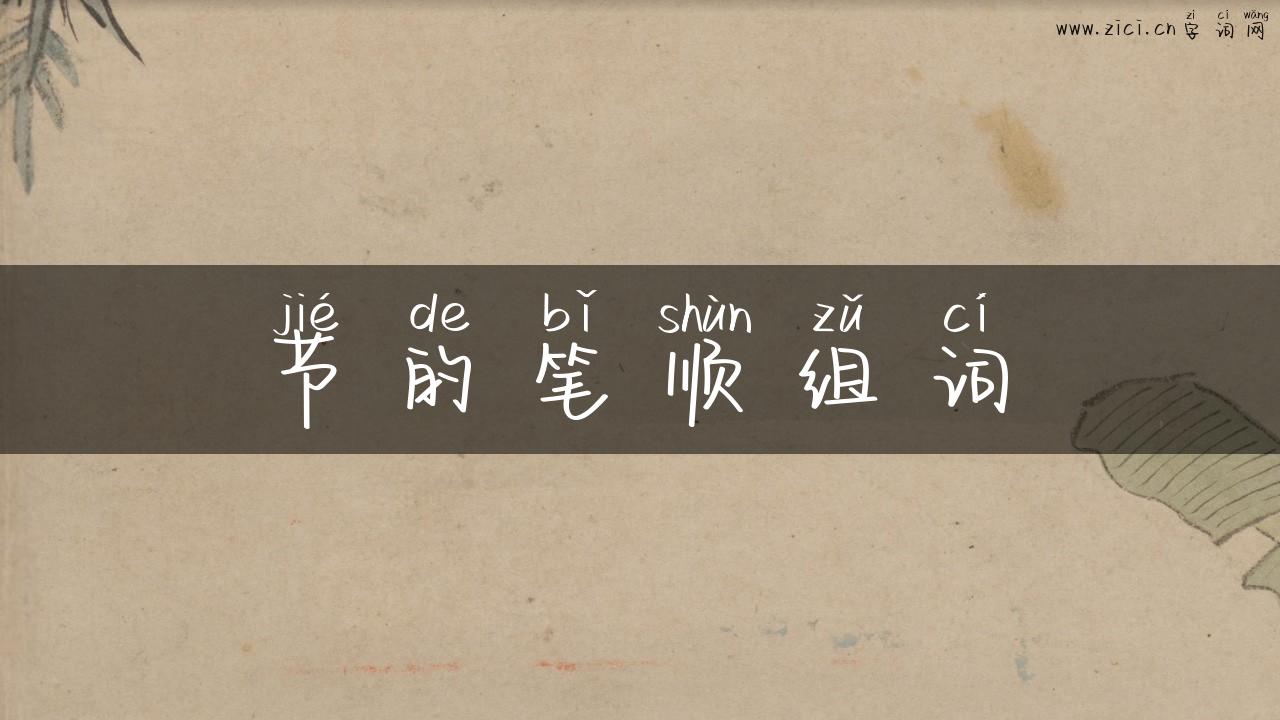 zì cí wǎng
www.zici.cn 字 词 网
jié de bǐ shùn zǔ cí
节 的 笔 顺 组 词